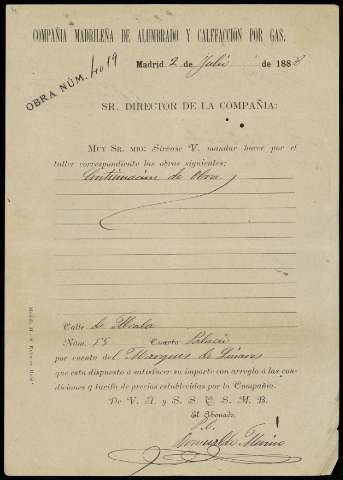 COMPAÑIA MADRILEÑA DE ALUMBRADO Y CALEFACCIÓN POR GAS.
Madrid 2 de Julio de 1888
OBRA NÚM. 4019
SR. DIRECTOR DE LA COMPAÑIA:
MUY SR. MIO: Sírvase V. mandar hacer por el
taller correspondiente las obras siguientes:
Continuación de Obra
Calle de Alcala
Núm. 55 Cuarto Palacio
por cuenta del Marques de Linares
que esta dispuesto á satisfacer su importe con arreglo á las con-
diciones y tarifa de precios establecidas por la Compañia.
De V. A. y S. S. Q. S. M. B.
El Abonado,